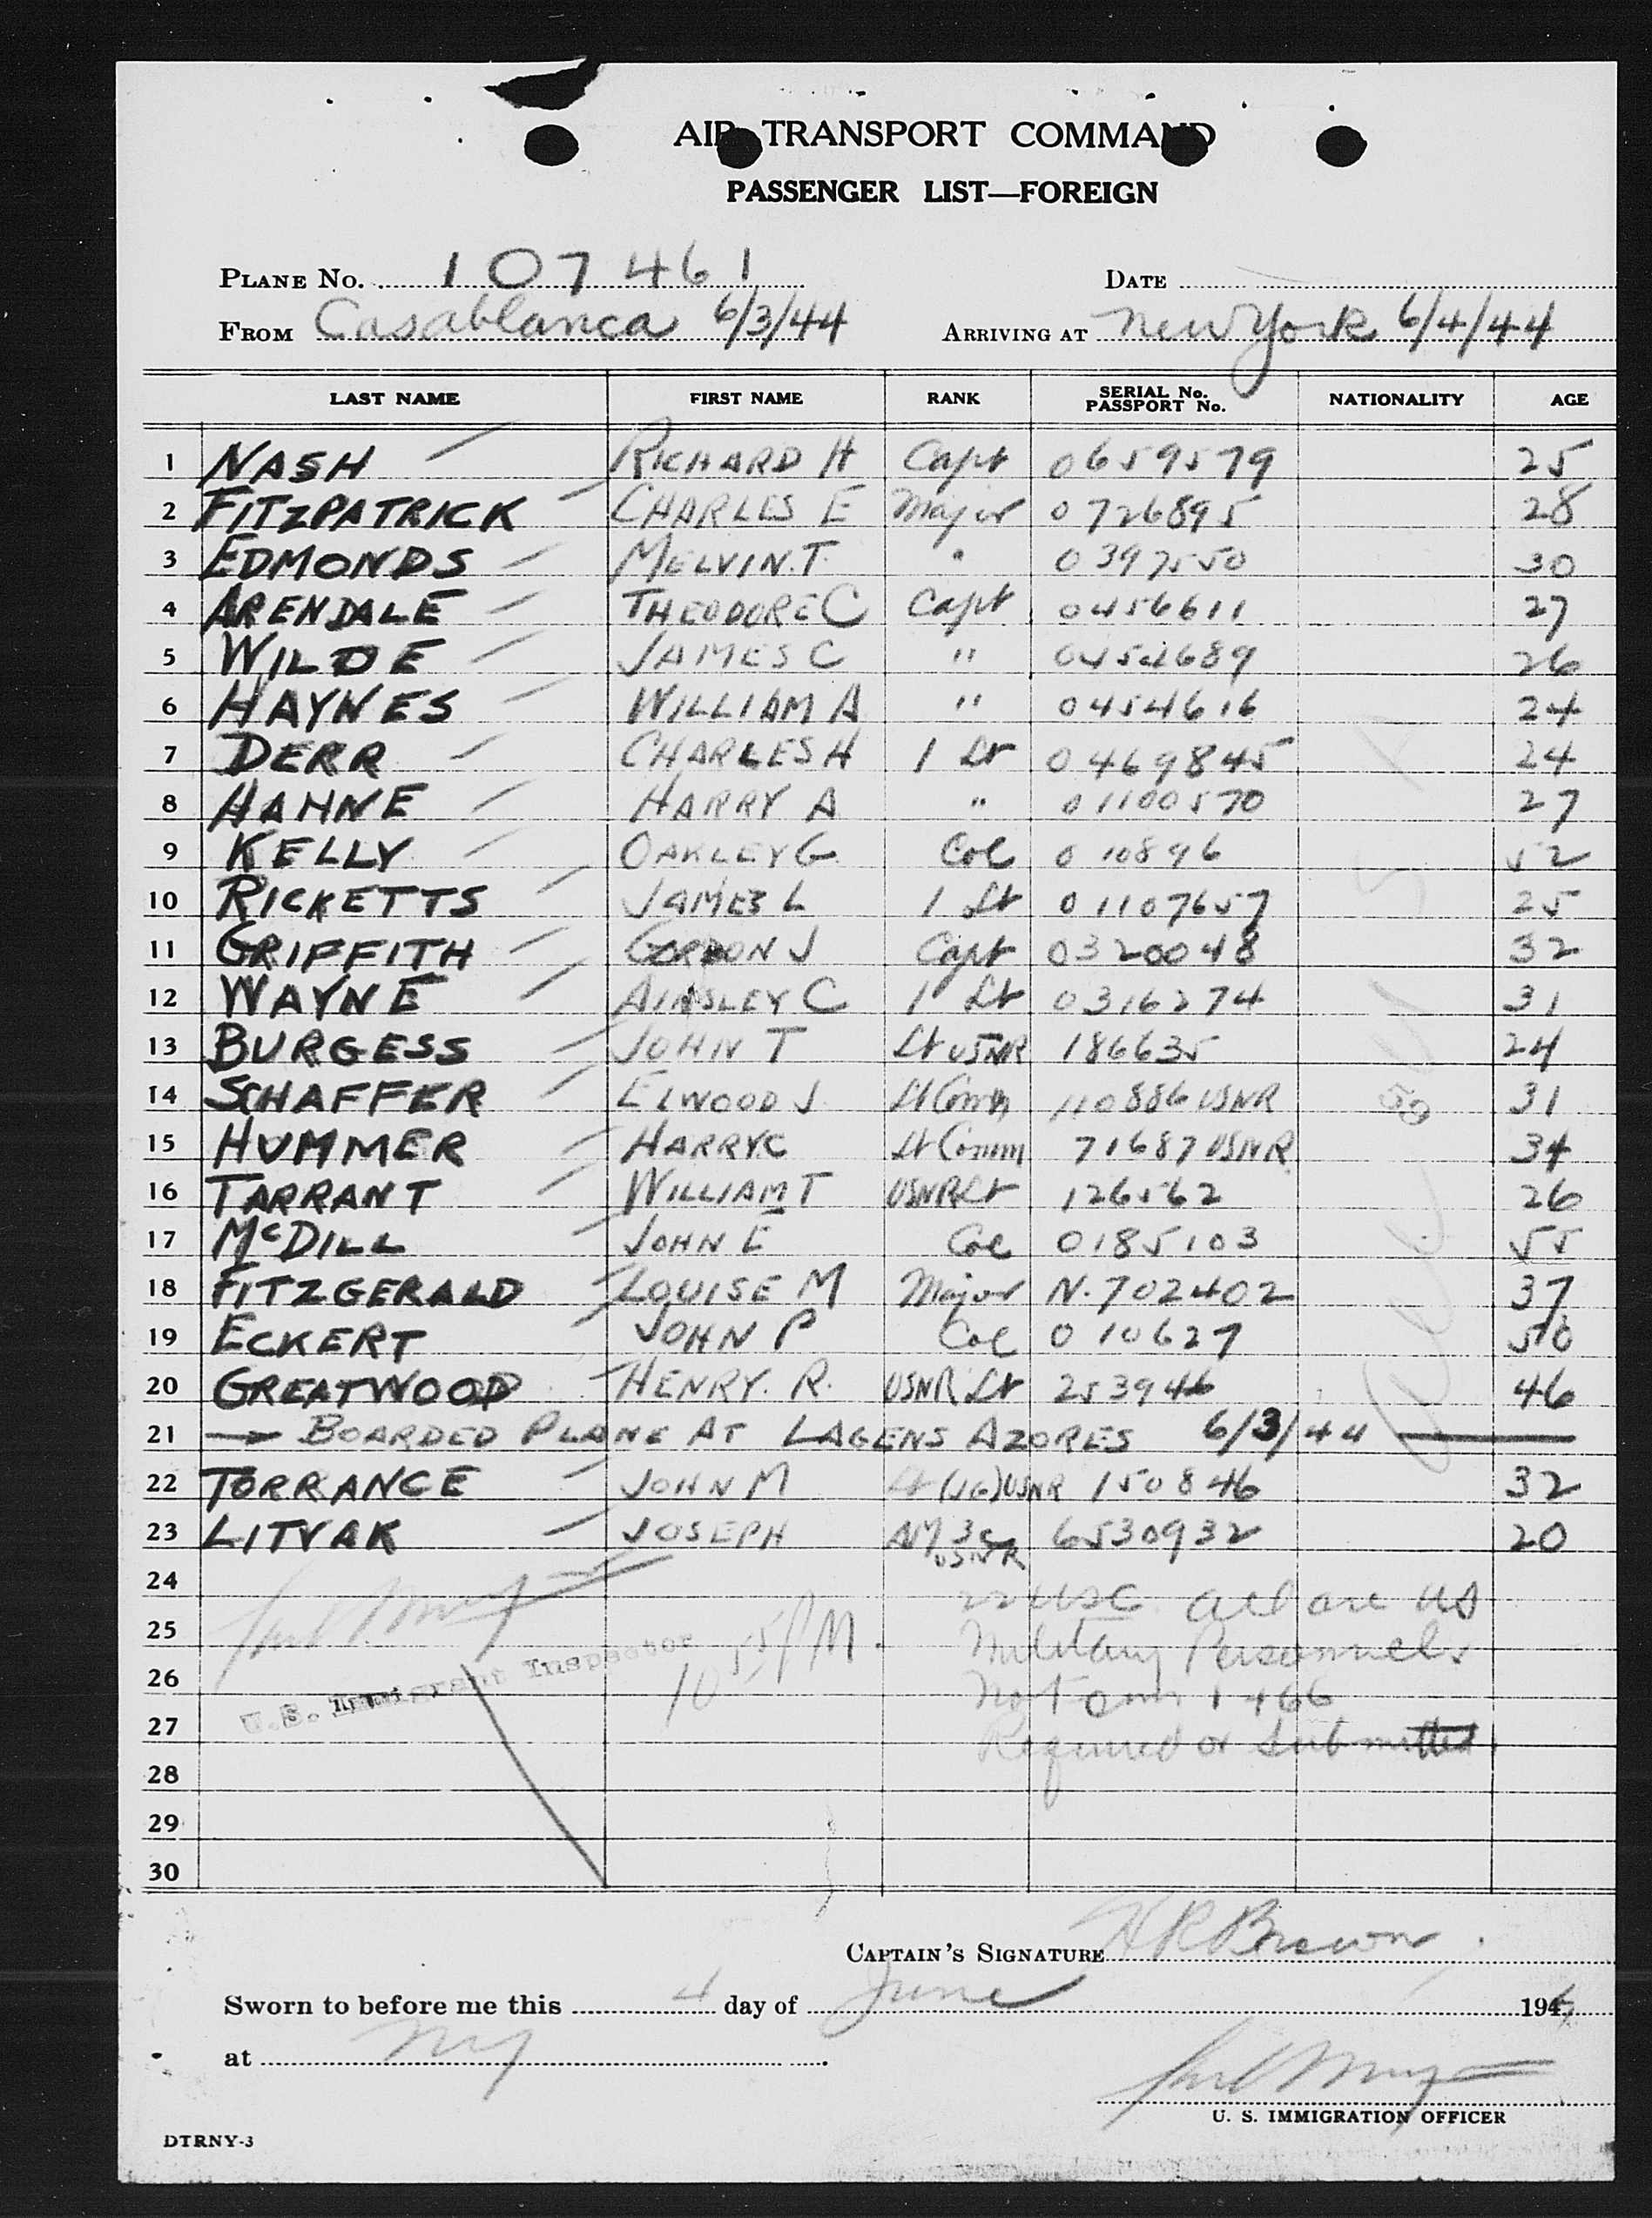 AIR TRANSPORT COMMAND
PASSENGER LIST—FOREIGN
PLANE No. 107461 DATE
FROM Casablanca 6/3/44 ARRIVING AT New York 6/4/44
LAST NAME FIRST NAME RANK SERIAL No. PASSPORT No. NATIONALITY AGE
1 NASH RICHARD H Capt 0659579 25
2 FITZPATRICK CHARLES E Major 0726895 28
3 EDMONDS MELVIN.T. " 0397550 30
4 ARENDALE THEODORE C Capt 0456611 27
5 WILDE JAMES C " 26
6 HAYNES WILLIAM A " 0454616 24
7 DERR CHARLES H 1 Lt 0469845 24
8 HAHNE HARRY A " 01100570 27
9 KELLY OAKLEY G Col 010896 52
10 RICKETTS JAMES L 1 Lt 01107657 25
11 GRIFFITH GORDON J Capt 0320048 32
12 WAYNE AINSLEY C 1 Lt 0316274 31
13 BURGESS JOHN T Lt USNR 186635 24
14 SCHAFFER ELWOOD J. Lt Comm 110886 USNR 31
15 HUMMER HARRY.C Lt Comm 71687 USNR 34
16 TARRANT WILLIAM T USNR Lt 126562 26
17 McDILL JOHN E Col 0185103 55
18 FITZGERALD LOUISE M Major N.702402 37
19 ECKERT JOHN P Col 010627 50
20 GREATWOOD HENRY. R. USNR Lt 253946 46
21 → BOARDED PLANE AT LAGENS AZORES 6/3/44
22 TORRANCE JOHN M Lt (JG) USNR 150846 32
23 LITVAK JOSEPH AM 3c USNR 6530932 20
24 all are US
25 Military Personnel
26 No Form 1466
27 Required or Submitted
28
29
30
10 55 PM.
U.S. Immigrant Inspector
CAPTAIN'S SIGNATURE H R Brown
Sworn to before me this 4 day of June 194
at NY
U. S. IMMIGRATION OFFICER
DTRNY-3